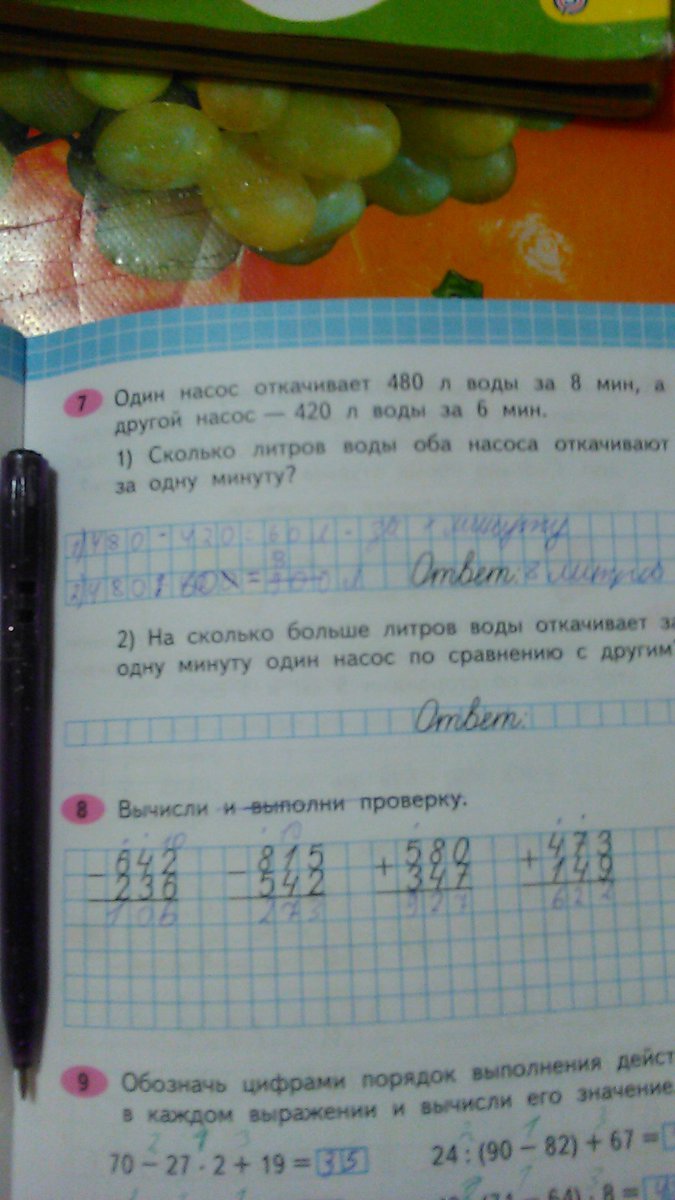 7 Один насос откачивает 480 л воды за 8 мин, а
другой насос — 420 л воды за 6 мин.
1) Сколько литров воды оба насоса откачивают
за одну минуту?
1) 480 - 420 = 60 л - за 1 минуту
2) 480 : 60 = 8 л Ответ: 8 литров
2) На сколько больше литров воды откачивает за
одну минуту один насос по сравнению с другим?
Ответ:
8 Вычисли и выполни проверку.
- 642 - 815 + 580 + 473
236 542 347 149
106 273 927 622
9 Обозначь цифрами порядок выполнения дейст
в каждом выражении и вычисли его значение.
2 1 3 1
70 − 27 · 2 + 19 = 35 24 : (90 − 82) + 67 =
64) · 8 =